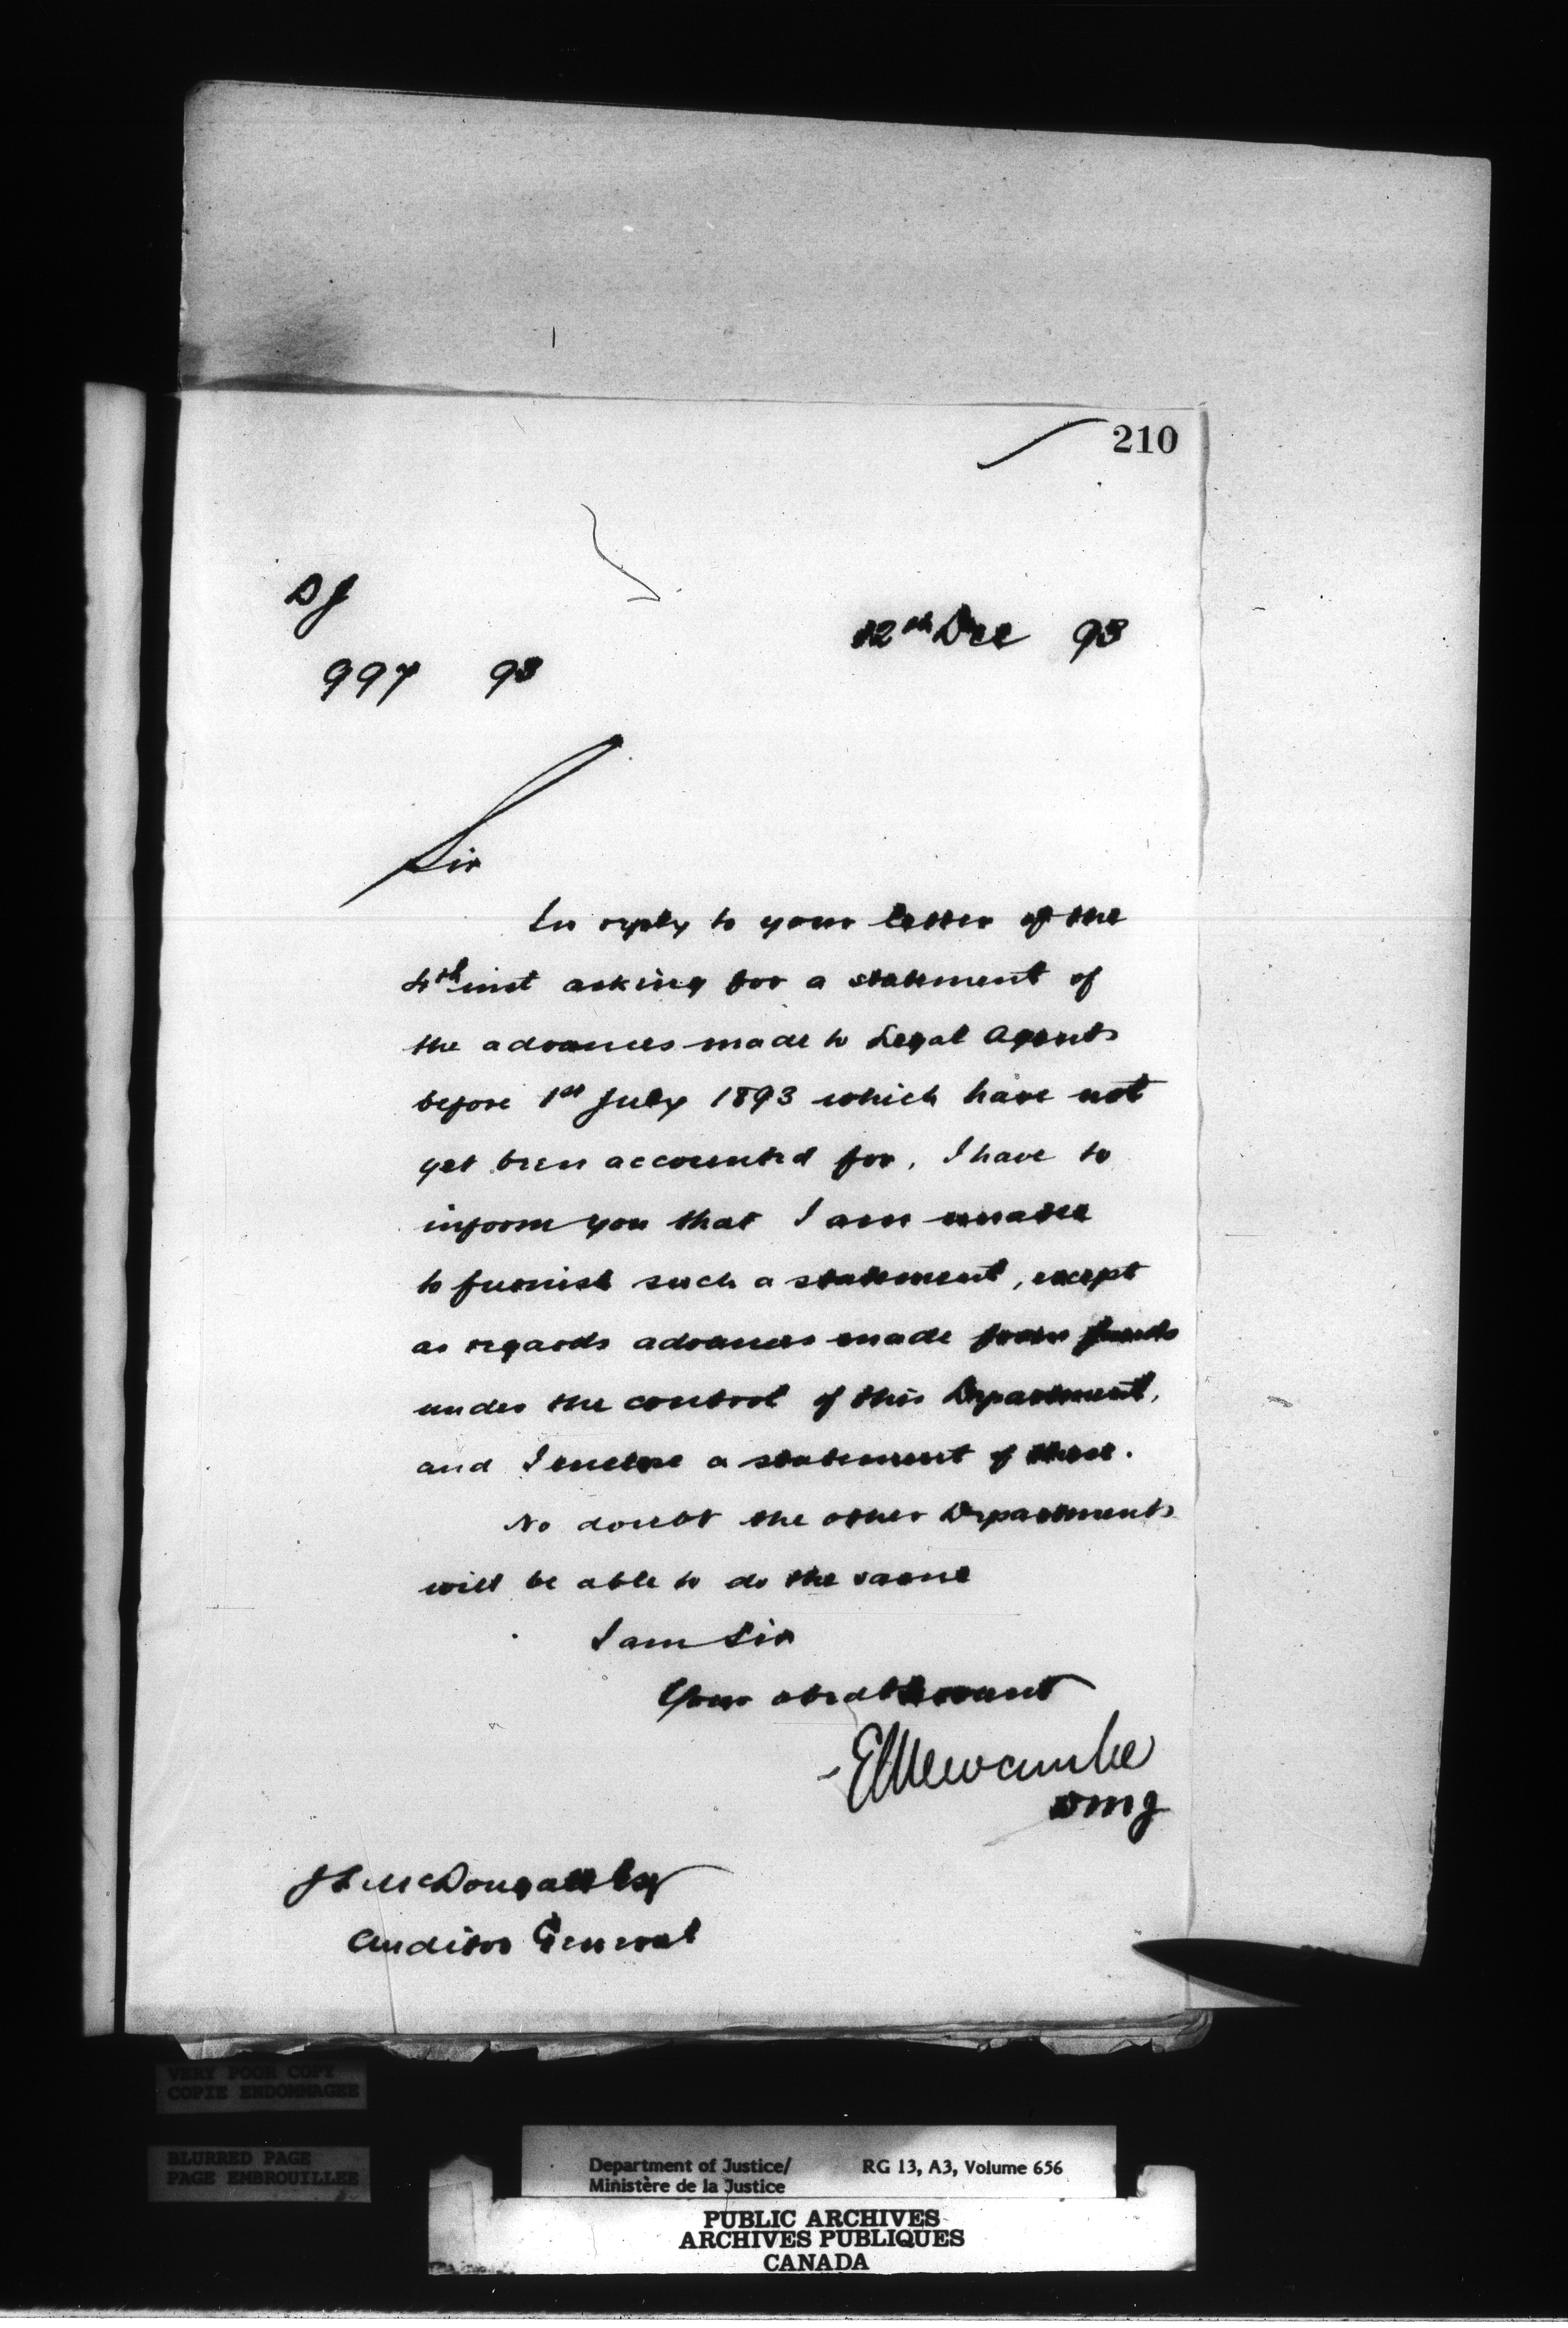 210
DJ
12th Dec 93
997 93
Sir
In reply to your letter of the
4th inst asking for a statement of
the advances made to Legal Agents
before 1st July 1893 which have not
yet been accounted for, I have to
inform you that I am unable
to furnish such a statement, except
as regards advances made from funds
under the control of this Department,
and I enclose a statement of these.
No doubt the other Departments
will be able to do the same
I am Sir
Your obedt Servant
E L Newcombe
DMJ
J L McDougall Esq
Auditor General
VERY POOR COPY
COPIE ENDOMMAGEE
BLURRED PAGE
PAGE EMBROUILLEE
Department of Justice/ RG 13, A3, Volume 656
Ministère de la Justice
PUBLIC ARCHIVES
ARCHIVES PUBLIQUES
CANADA